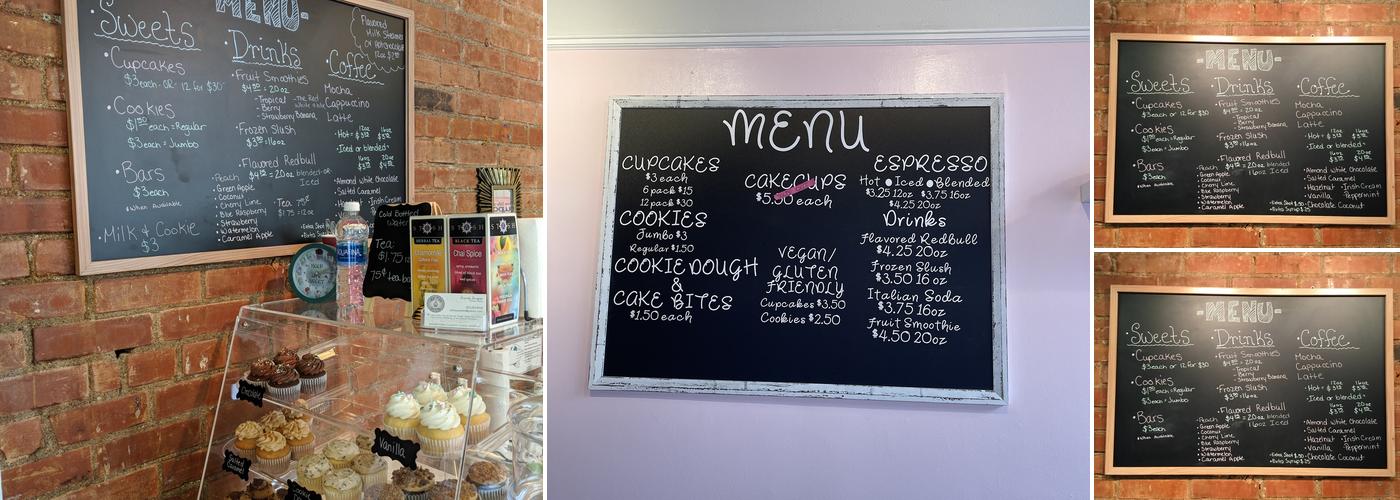 MENU-
Sweets
Cupcakes
$3 each -OR- 12 for $30
Cookies
$1.50 each = Regular
$3 each = Jumbo
Bars
$3 each
*When Available
Milk & Cookie
$3
Drinks
Fruit Smoothies
$4.50 = 20oz
-Tropical
-Berry
-Strawberry Banana
Frozen Slush
$3.50 = 16oz
Flavored Redbull
$4.25 = 20oz blended
Iced
Peach
Green Apple
Coconut
Cherry Lime
Blue Raspberry
Strawberry
Watermelon
Caramel Apple
Flavored
Milk Steamer
Or Hot chocolate
Coffee
Mocha
Cappuccino
Latte
Hot =
Iced or blended
Almond white Chocolate
Salted Caramel
Hazelnut
Irish Cream
Cold Bottled
Water
Tea:
$1.75
75¢ tea bag
AQUAFINA
STASH
HERBAL TEA
Chamomile
STASH
BLACK TEA
Chai Spice
Chocolate
Salted Caramel
Vanilla
MENU
CUPCAKES
$3 each
6 pack $15
12 pack $30
COOKIES
Jumbo $3
Regular $1.50
COOKIE DOUGH
&
CAKE BITES
$1.50 each
CAKECUPS
$5.50 each
VEGAN/
GLUTEN
FRIENDLY
Cupcakes $3.50
Cookies $2.50
ESPRESSO
Hot Iced Blended
$3.25 12oz $3.75 16oz
$4.25 20oz
Drinks
Flavored Redbull
$4.25 20oz
Frozen Slush
$3.50 16 oz
Italian Soda
$3.75 16oz
Fruit Smoothie
$4.50 20oz
-MENU-
Sweets
Cupcakes
$3 each or 12 for $30
Cookies
$1.50 each = Regular
$3 each = Jumbo
Bars
$3 each
*When Available
Drinks
Fruit Smoothies
$4.50 = 20oz
-Tropical
-Berry
-Strawberry Banana
Frozen Slush
$3.50 = 16oz
Flavored Redbull
$4.25 = 20oz blended
16oz Iced
Peach
Green Apple
Coconut
Cherry Lime
Blue Raspberry
Strawberry
Watermelon
Caramel Apple
Coffee
Mocha
Cappuccino
Latte
Hot =
Iced or blended
Almond white Chocolate
Salted Caramel
Hazelnut Irish Cream
Vanilla Peppermint
Chocolate Coconut
-MENU-
Sweets
Cupcakes
$3 each or 12 for $30
Cookies
$1.50 each = Regular
$3 each = Jumbo
Bars
$3 each
*When Available
Drinks
Fruit Smoothies
$4.50 = 20oz
-Tropical
-Berry
-Strawberry Banana
Frozen Slush
$3.50 = 16oz
Flavored Redbull
$4.25 = 20oz blended
16oz Iced
Peach
Green Apple
Coconut
Cherry Lime
Blue Raspberry
Strawberry
Watermelon
Caramel Apple
Coffee
Mocha
Cappuccino
Latte
Hot =
Iced or blended
Almond white Chocolate
Salted Caramel
Hazelnut Irish Cream
Vanilla Peppermint
Chocolate Coconut